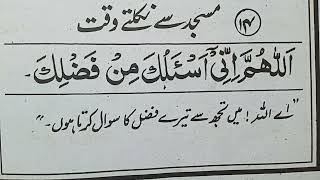 مسجد سے نکلتے وقت (۱۴۷)
اَللّٰهُمَّ اِنِّیْٓ اَسْئَلُكَ مِنْ فَضْلِكَ۔
"اے اللہ! میں تجھ سے تیرے فضل کا سوال کرتا ہوں۔"